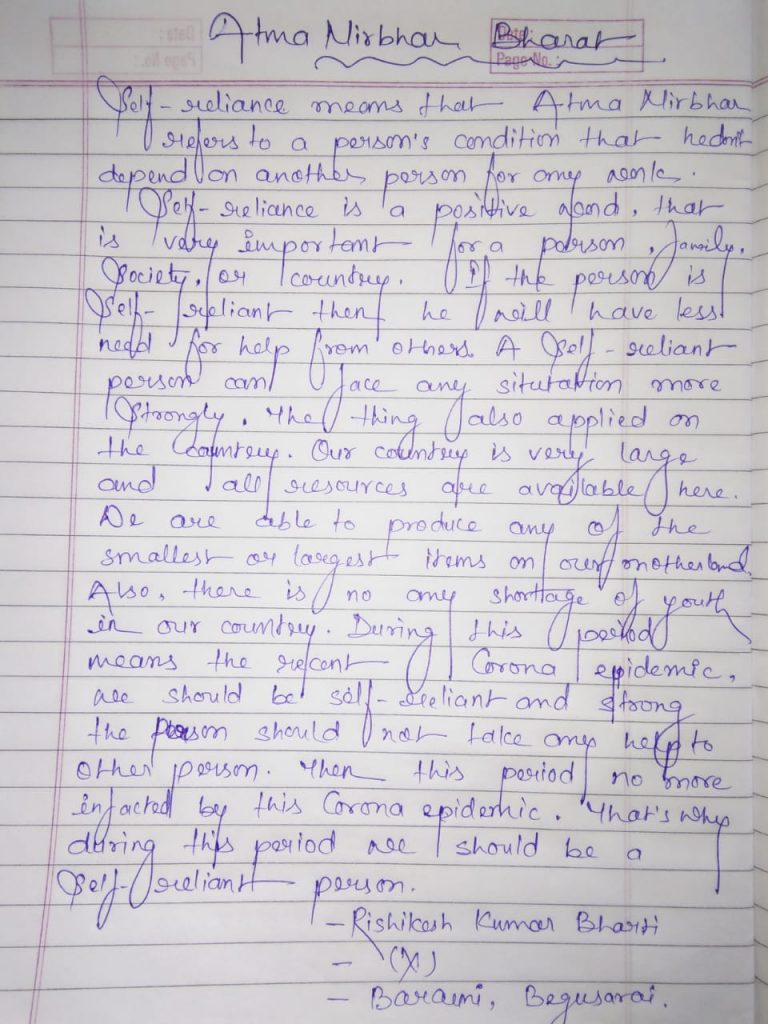 Atma Nirbhar Bharat
Date :
Page No. :
Self-reliance means that Atma Nirbhar
refers to a person's condition that hedon't
depend on another person for any work.
Self-reliance is a positive word, that
is very important for a person, family,
Society, or country. If the person is
Self-reliant then he will have less
need for help from others. A Self-reliant
person can face any situtation more
Strongly. The thing also applied on
the country. Our country is very large
and all resources are available here.
We are able to produce any of the
smallest or largest items on our motherland.
Also, there is no any shortage of youth
in our country. During this period
means the recent Corona epidemic,
we should be self-reliant and strong
the person should not take any help to
other person. Then this period no more
infacted by this Corona epidemic. That's why
during this period we should be a
Self-reliant person.
- Rishikesh Kumar Bharti
- (X)
- Barauni, Begusarai.